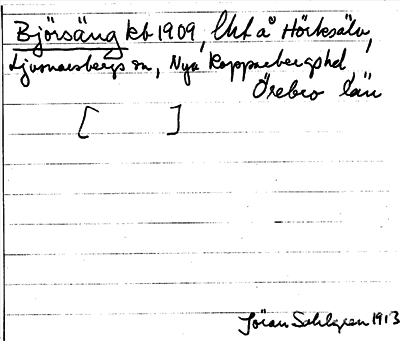 Björsäng kb 1909, Utt å Hörksälv,
Ljusnarsbergs sn, Nya Kopparbergs hd,
Örebro län
[ ]
Jöran Sahlgren 1913